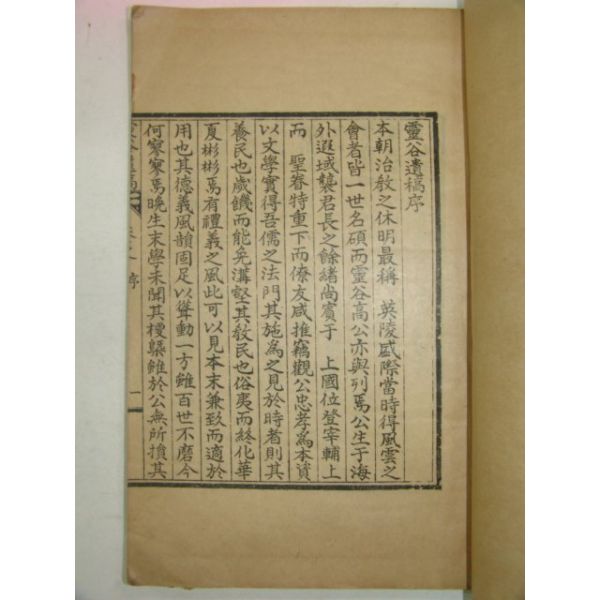 靈谷遺稿序
本朝治敎之休明最稱 英陵盛際當時得風雲之
會者皆一世名碩而靈谷高公亦與列焉公生于海
外遐域襲君長之餘緖尙賓于 上國位登宰輔上
而 聖眷特重下而僚友咸推竊觀公忠孝爲本資
以文學實得吾儒之法門其施爲之見於時者則其
養民也歲饑而能免溝壑其敎民也俗夷而終化華
夏彬彬焉有禮義之風此可以見本末兼致而適於
用也其德義風韻固足以聳動一方雖百世不磨今
何寥寥焉晩生末學未聞其梗槩雖於公無所損其
靈谷遺稿
序
一